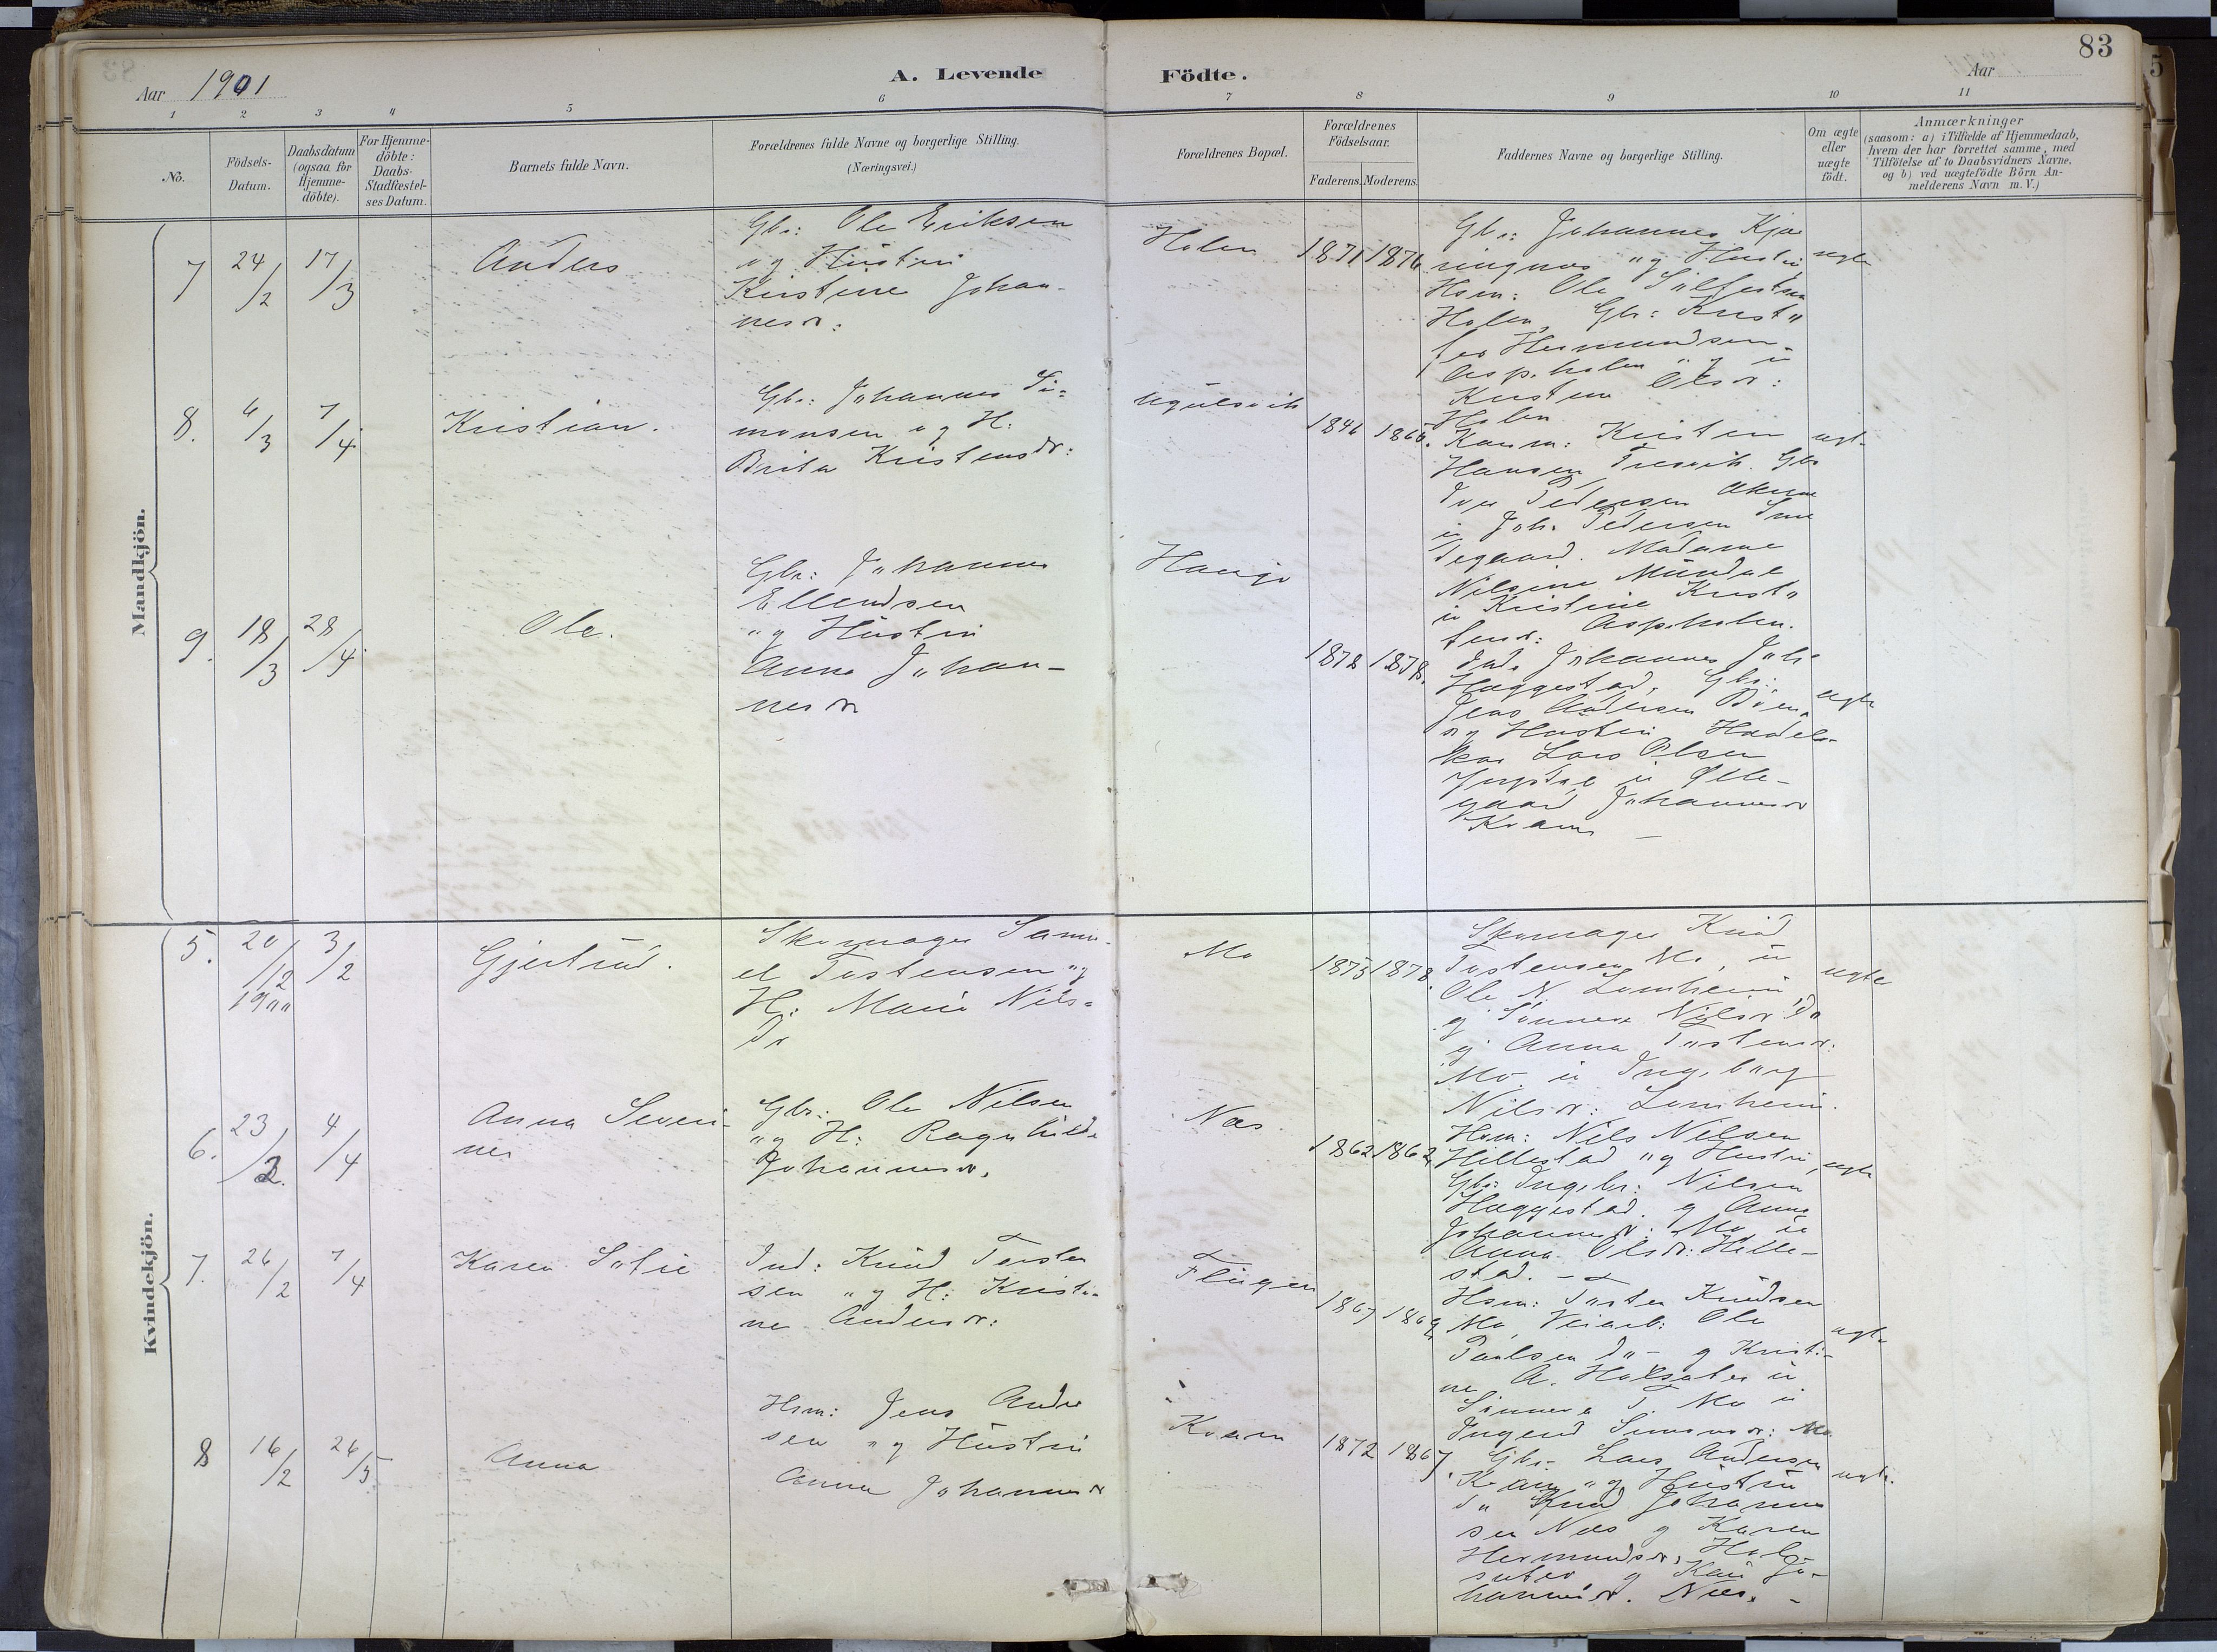 83
Aar 1901
A. Levende Födte.
Aar
1 2 3 4 5 6 7 8 9 10 11
No.
Födsels-
Datum.
Daabsdatum
(ogsaa for
Hjemme-
döbte).
For Hjemme-
döbte:
Daabs-
Stadfæstel-
ses Datum.
Barnets fulde Navn.
Forældrenes fulde Navne og borgerlige Stilling.
(Næringsvei.)
Forældrenes Bopæl.
Forældrenes
Födselsaar.
Faderens. Moderens.
Faddernes Navne og borgerlige Stilling.
Om ægte
eller
uægte
födt.
Anmærkninger
(saasom: a) i Tilfælde af Hjemmedaab,
hvem der har forrettet samme, med
Tilföielse af to Daabsvidners Navne,
og b) ved uægtefödte Börn An-
melderens Navn m. V.)
Mandkjön.
7 24/2 17/3
Anders
Gbr: Ole Eriksen
og Hustru
Kristine Johan-
nesdr:
Holen
1871 1876
Gbr: Johannes Kjæ
ringnes og Hustru
Hsm: Ole
Holen, Gbr: Kristo
fer Hermundsen
Aspholen u
Kristen Olsdr:
Holen
ægte
8. 6/3 7/4
Kristian.
Gbr: Johannes Si-
monsen og H:
Brita Kristensdr:
1846 1866.
Kaarm: Kristen
Hansen Gbr
Pedersen
u Joh. Pedersen
degaard. Madame
Nilsine Mundal
u Kristine Kristo
fersdr: Aspholen.
ægte
9. 18/3 28/4
Ole.
Gbr: Johannes
Ellendsen
og Hustru
Anna Johan-
nesdr
Haugo
1878 1878.
Ind. Johannes Joh:
Haggestad, Gbr:
Jens Andersen
og Hustru
Lars Olsen
u Olle-
gaard Johannesdr
Kvam
ægte
Kvindekjön.
5. 20/12 3/2
1900
Gjertrud.
Skomager Samu-
el Tostensen og
H: Marie Nils-
dr
Mo
1875 1878.
Skomager Knud
Tostensen Mo, u
Ole N. Lomheim
g Sünneva Nilsdr do
g Anna Tostensdr:
Mo u Ingeborg
Nilsdr: Lomheim.
ægte
6. 23/2. 4/4
Anna Severi-
nes
Gbr: Ole Nilsen
og H: Ragnhilde
Johannesdr.
Nes.
1862 1862
Hsm: Nils Nilsen
Hillestad og Hustru,
Gbr: Ingebr: Nilsen
Haggestad, g Anna
Johannesdr: Mo u
Anna Olsdr: Hille-
stad. —
ægte
7. 26/2 7/4
Karen Sofie
Ind: Knud Torste
sen og H: Kristi-
ne Andersdr:
Flugen
1867 1869
Hsm: Tosten Knudsen
Mo, Veiarb: Ole
Paulsen do — g Kristi-
ne A. u
Sünneva T. Mo u
Ingerid Simonsdr: Mo
ægte
8 16/2 26/5
Anna
Hsm: Jens Ander
sen og Hustru
Anna Johannesdr
Kvam
1872 1867
Gbr. Lars Andersen
Kvam og Hustru
do Knud Johannes
sen Nes g Karen
Hermundsdr, Holg-
sæter g Kari Jo-
hannesdr. Nes. —
ægte.